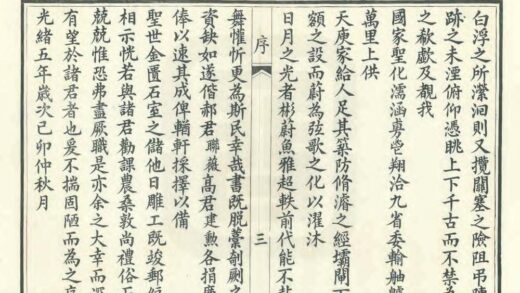 白浮之所瀠洄則又攬關塞之險阻弔陳
跡之未湮俯仰憑眺上下千古而不禁為
之欷歔及覩我
國家聖化濡涵旉皅翔洽九省委輸舳艫
萬里上供
天庾家給人足其築防脩濬之經壩閘
額之設而蔚為弦歌之化以濯沐
日月之光者彬蔚魚雅超軼前代能不
序
三
舞懽忻更為斯民幸哉書既脱藁剞劂之
資缺如遂偕郝君聯薇髙君建勲各捐
俸以速其成俾輶軒採擇以備
聖世金匱石室之儲他日雕工既竣郵
相示恍若與諸君勸課農桑敦尚禮俗
兢兢惟恐弗盡厥職是亦余之大幸而
有望於諸君者也爰不揣固陋而為之
光緒五年歲次己卯仲秋月